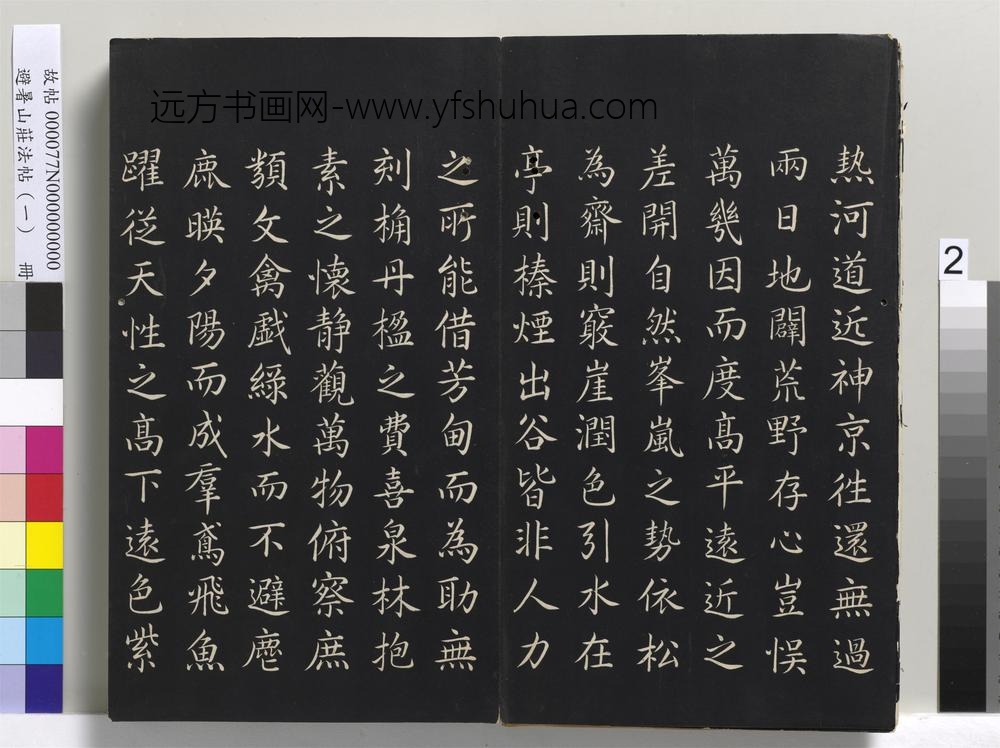 远方书画网-www.yfshuhua.com
熱河道近神京徃還無過
兩日地闢荒野存心豈悞
萬幾因而度髙平遠近之
差開自然峯嵐之勢依松
為齋則竅崖潤色引水在
亭則榛煙出谷皆非人力
之所能借芳甸而為助無
刻桷丹楹之費喜泉林抱
素之懷静觀萬物俯察庶
類文禽戯綠水而不避麀
鹿暎夕陽而成羣鳶飛魚
躍従天性之髙下遠色紫
故帖000077N000000000
避暑山莊法帖(一) 冊
2